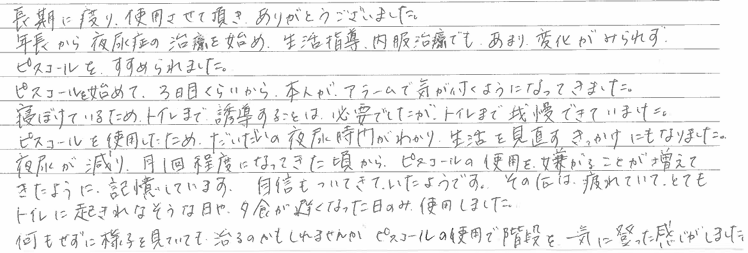 長期に渡り、使用させて頂き、ありがとうございました。
年長から夜尿症の治療を始め、生活指導、内服治療でも、あまり変化がみられず、
ピスコールを、すすめられました。
ピスコールを始めて、3日目くらいから、本人が、アラームで気が付くようになってきました。
寝ぼけているため、トイレまで、誘導することは、必要でしたが、トイレまで我慢できていました。
ピスコールを使用したため、だいたいの夜尿時間がわかり、生活を見直すきっかけにもなりました。
夜尿が減り、月1回程度になってきた頃から、ピスコールの使用を、嫌がることが増えて
きたように、記憶しています。 自信もついてきていたようです。 その后は、疲れていて、とても
トイレに起きれなそうな日や、夕食が遅くなった日のみ、使用しました。
何もせずに様子を見ていても、治るのかもしれませんが、ピスコールの使用で階段を一気に登った感じがしました。